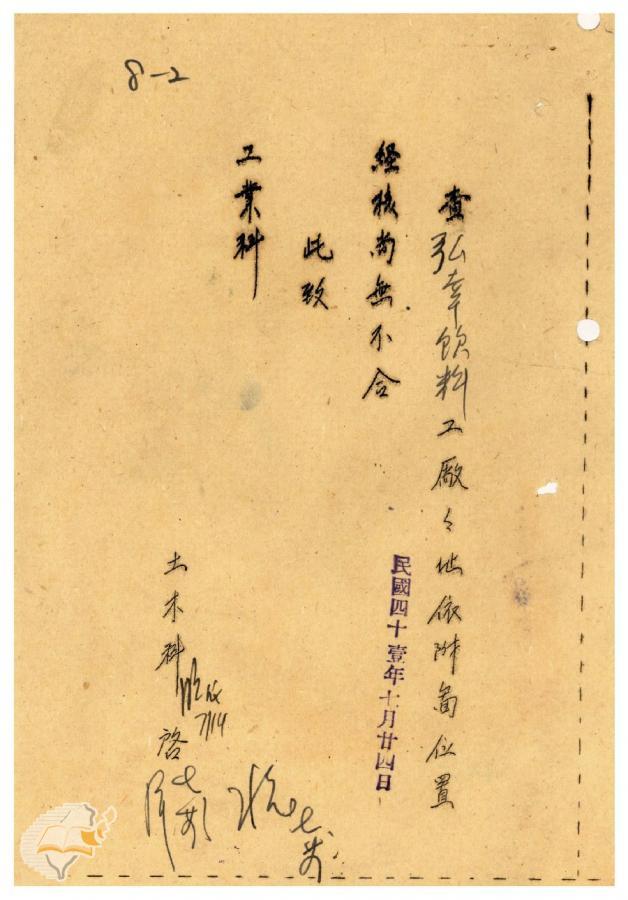 8-2
查弘幸飲料工廠々址依附圖位置
経核尚無不合
民國四十壹年七月廿四日
此致
工業科
土木科 啓
7/14